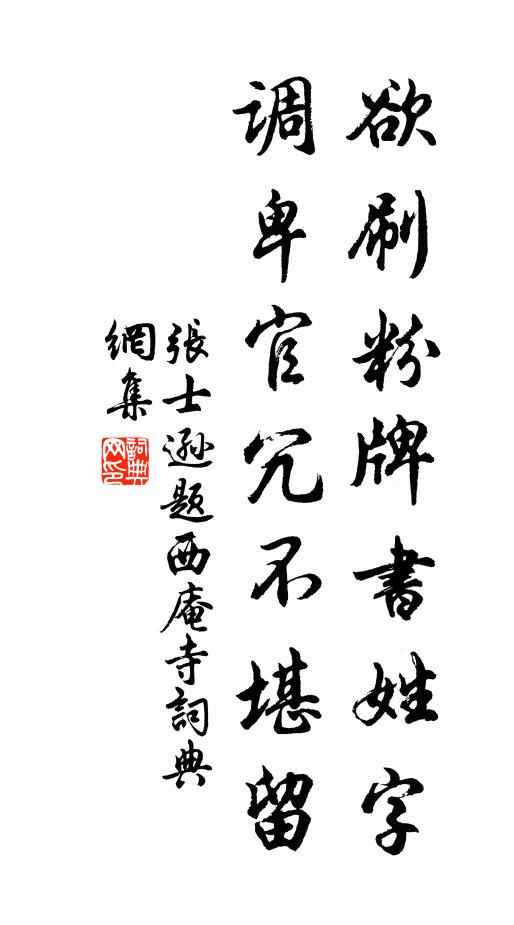 欲刷粉牌書姓字
调卑官冗不堪留
張士遜题西庵寺詞典
網集
詞典
网印